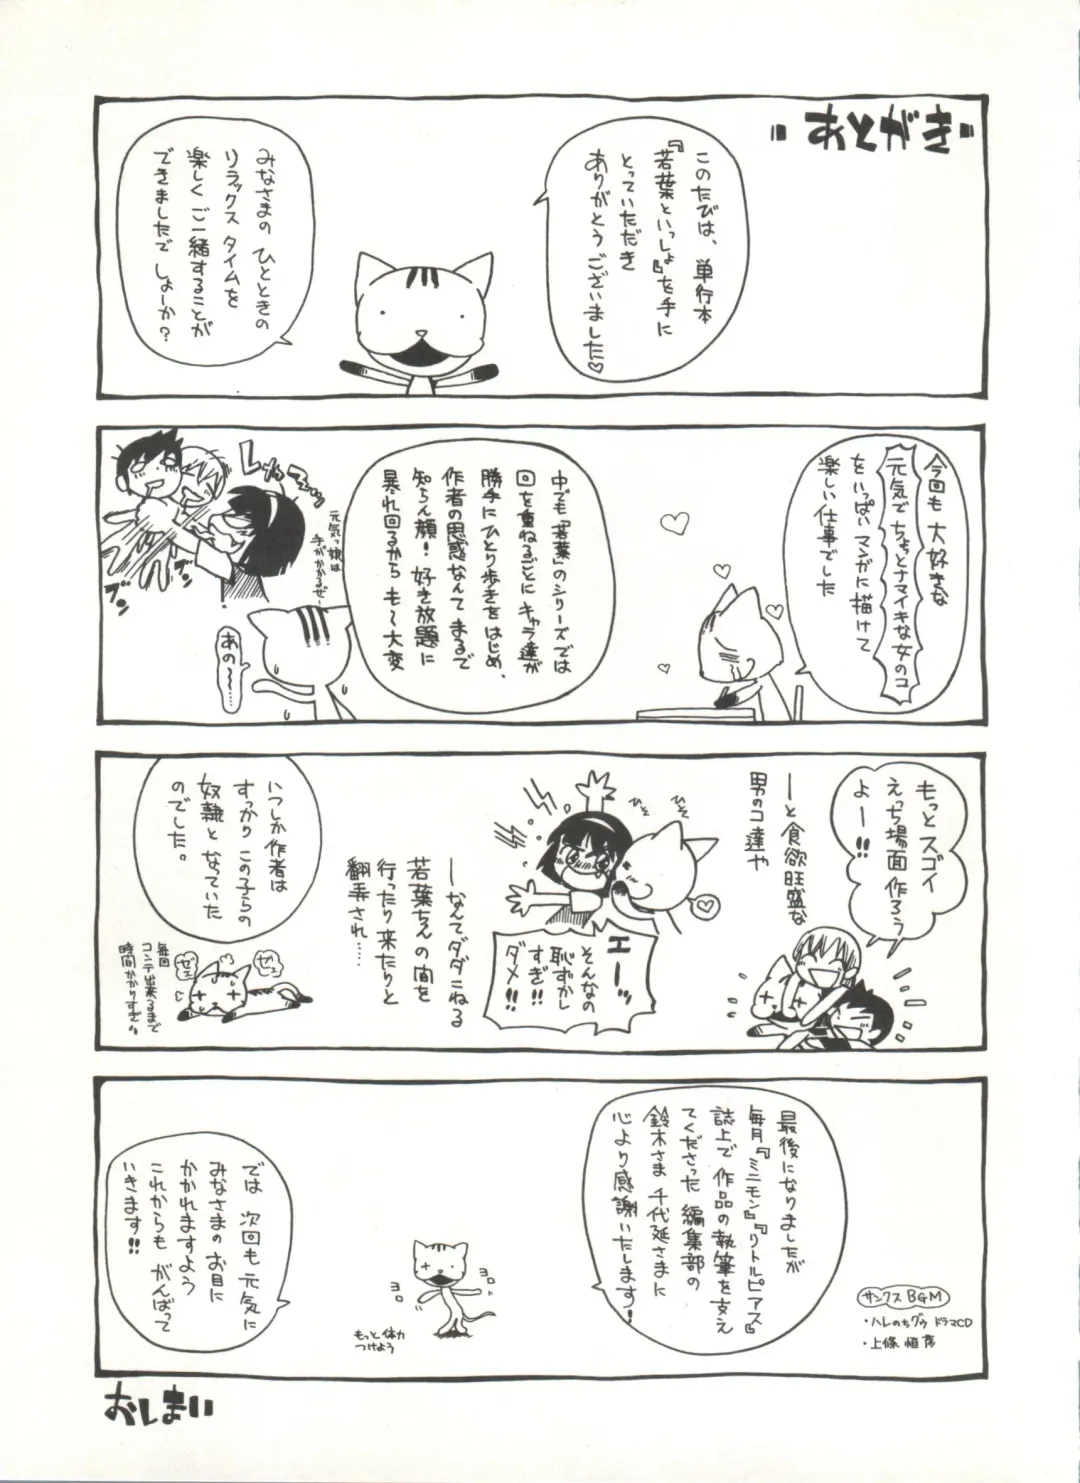 "あとがき"
このたびは、単行本
『若葉といっしょ』を手に
とっていただき
ありがとうございました♡
みなさまの ひとときの
リラックス タイムを
楽しく ご一緒することが
できましたで しょーか?
今回も 大好きな
元気で ちょっとナマイキな女のコ
を いっぱい マンガに 描けて
楽しい仕事でした
中でも『若葉』のシリーズでは
回を重ねるごとに キャラ達が
勝手に ひとり歩きをはじめ、
作者の思惑なんて まるで
知らん顔! 好き放題に
暴れ回るから も〜大変
元気っ娘は
手がかかるぜ…
あの〜……
ブン
ブン
もっとスゴイ
えっち場面 作ろう
よー!!
―と食欲旺盛な
男のコ達や
ひそ
ひそ
エーッ
そんなの
恥ずかし
すぎ!!
ダメ!!
―なんてダダこねる
若葉ちんの間を
行ったり来たりと
翻弄され……
いつしか作者は
すっかり この子らの
奴隷と なっていた
のでした。
ゼェ
ゼェ
毎回
コンテ出来るまで
時間かかりすぎ
最後になりましたが
毎月『ミニモン』『リトルピアス』
誌上で 作品の執筆を支え
てくださった 編集部の
鈴木さま 千代延さまに
心より感謝いたします!
サンクス BGM
・ハレのちグゥ ドラマCD
・上條 恒彦
ヨロ
ヨロ
もっと体力
つけよう
では 次回も 元気に
みなさまの お目に
かかれますよう
これからも がんばって
いきます!!
おしまい